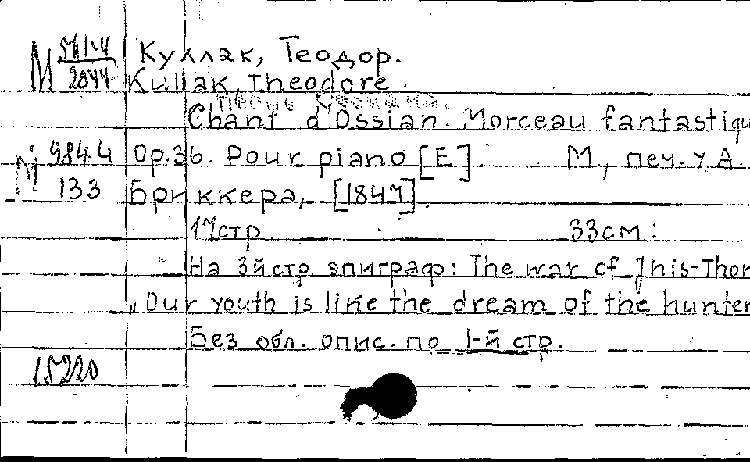 М 511-4/2044 Куллак, Теодор.
Kullak, Theodore.
Песнь Оссиана.
Chant d'Ossian. Morceau fantastiqu
М 984.4 Op.36. Pour piano [E]. М., печ. у А.
133 Бриккера, [1847].
17стр 33см:
На 3й стр эпиграф: The war of Inis-Thon
„Our youth is like the dream of the hunter
Без обл. опис. по 1-й стр.
15220